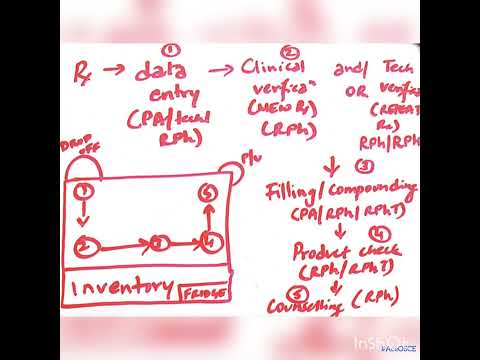 ①
Rx → data entry (PA/tech/ RPh)
② → Clinical verificaⁿ (NEW Rx) (RPh)
and/ OR Tech verifi (REPEAT Rx) RPh/RPh
③
Filling/Compounding
(PA/RPh/RPhT)
④
Product check
(RPh/RPhT)
⑤
Counselling (RPh)
DROP OFF
P/U
① ⑤
② → ③ → ④
Inventory
FRIDGE
InShO